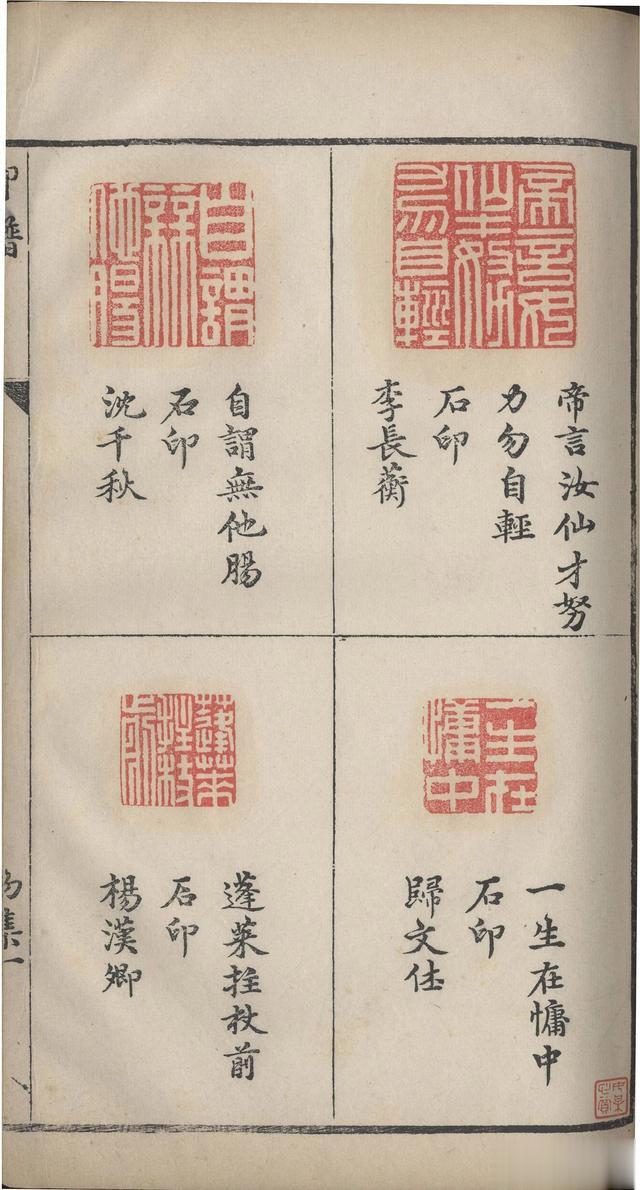 帝言汝仙才努
力勿自輕
石印
李長蘅
一生在慵中
石印
歸文休
自謂無他腸
石印
沈千秋
蓬萊拄杖前
石印
楊漢卿
印譜
初集一